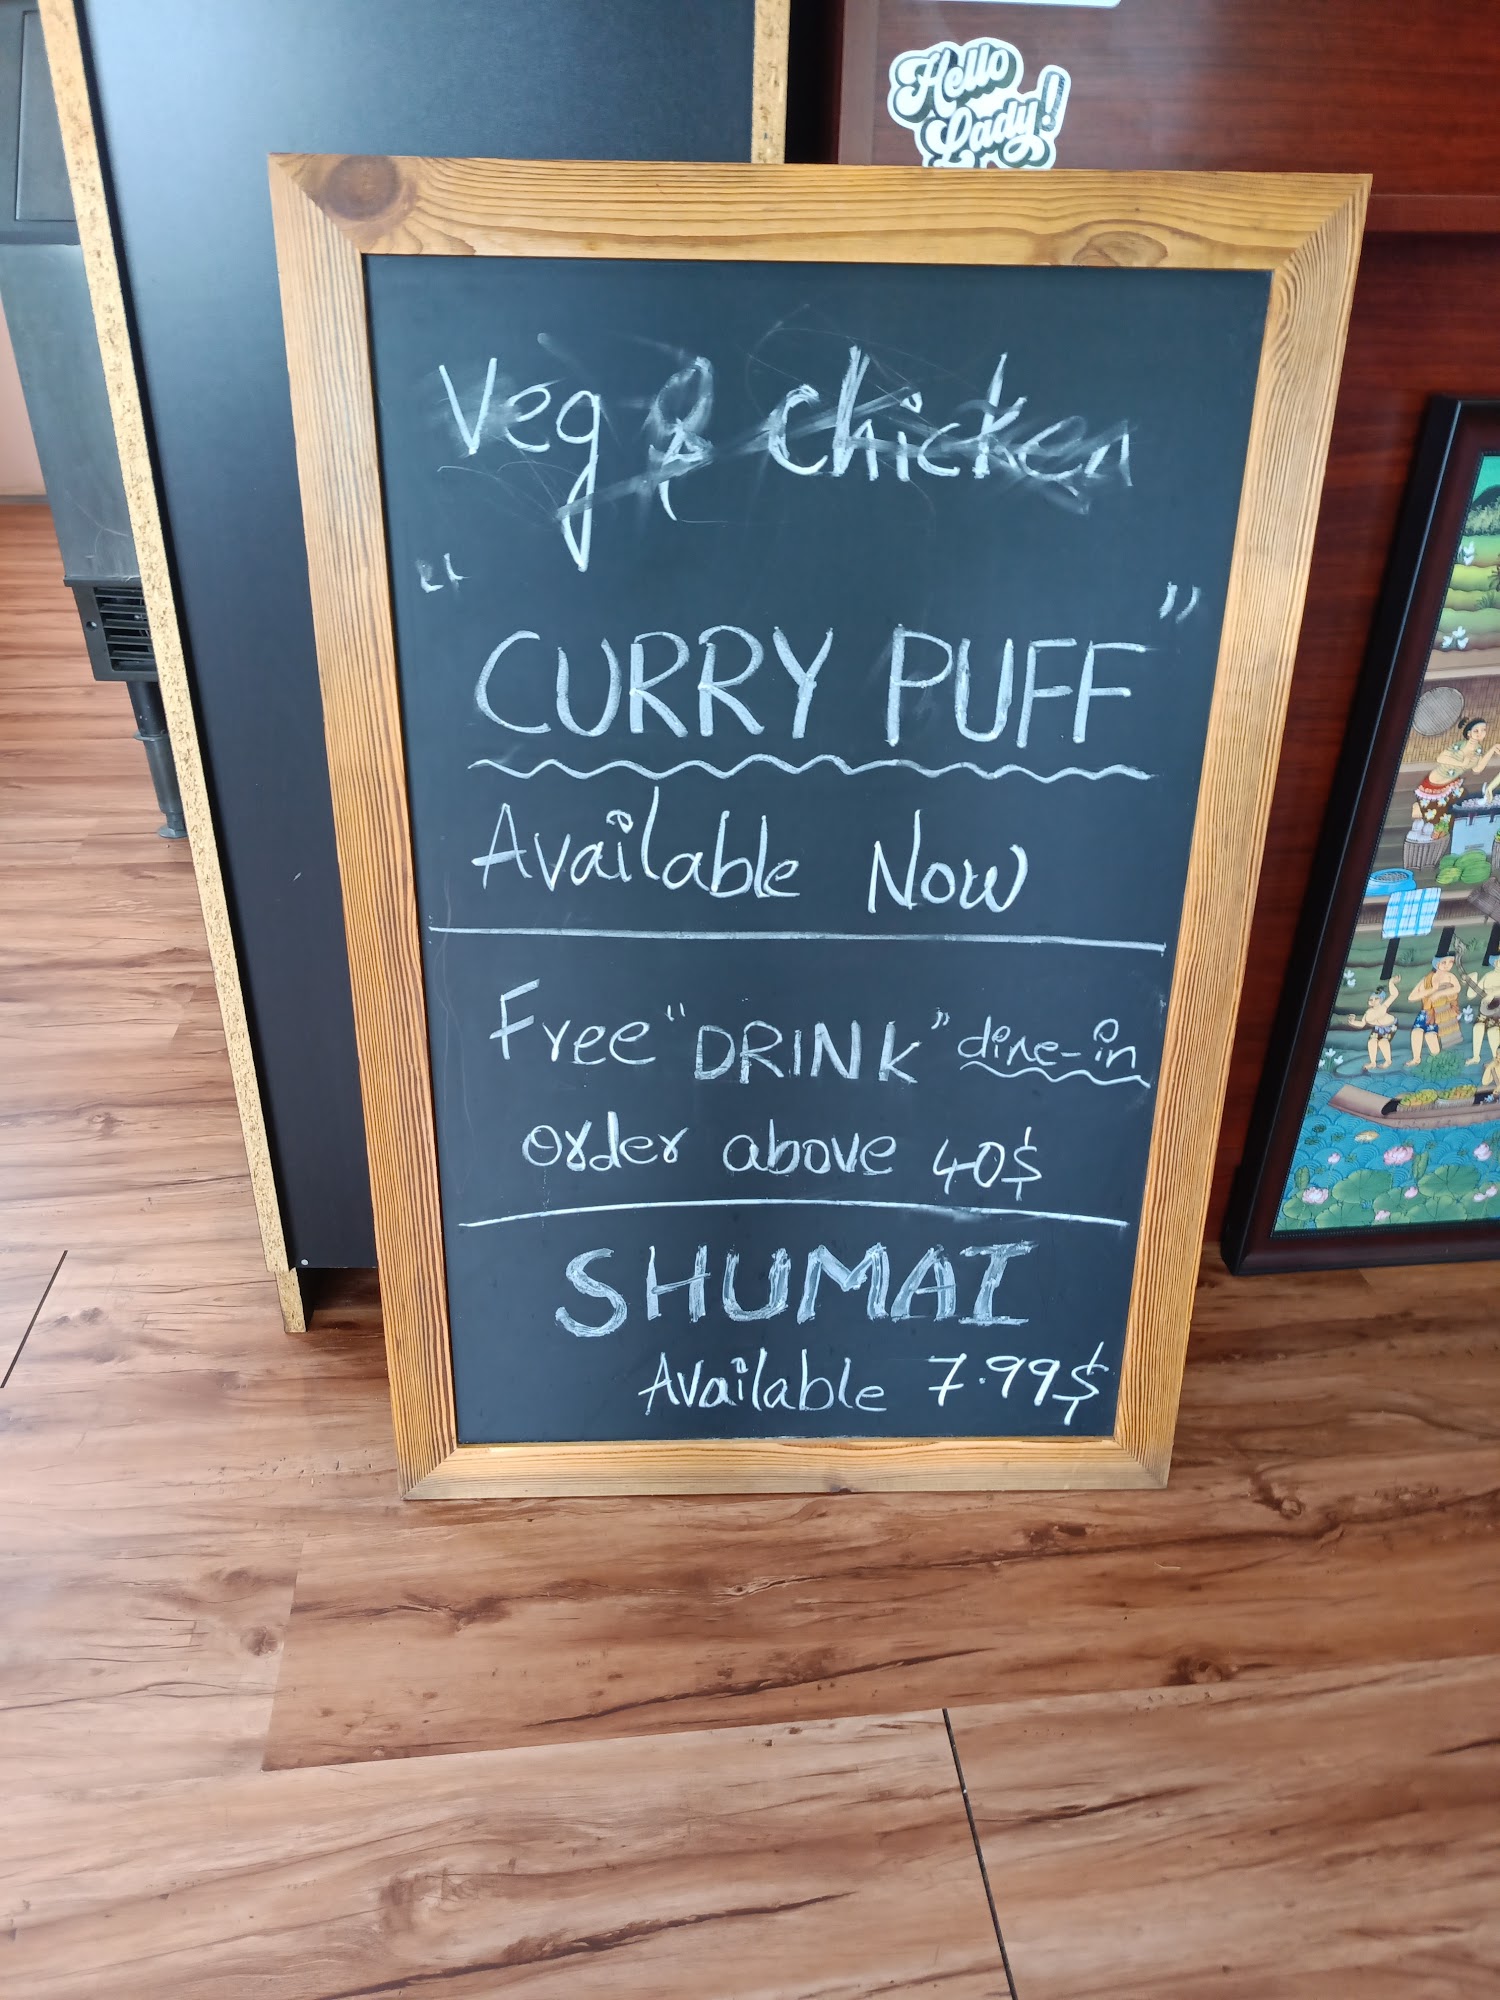 Hello
Lady!
Veg & Chicken
"CURRY PUFF"
Available Now
Free "DRINK" dine-in
order above 40$
SHUMAI
Available 7.99$